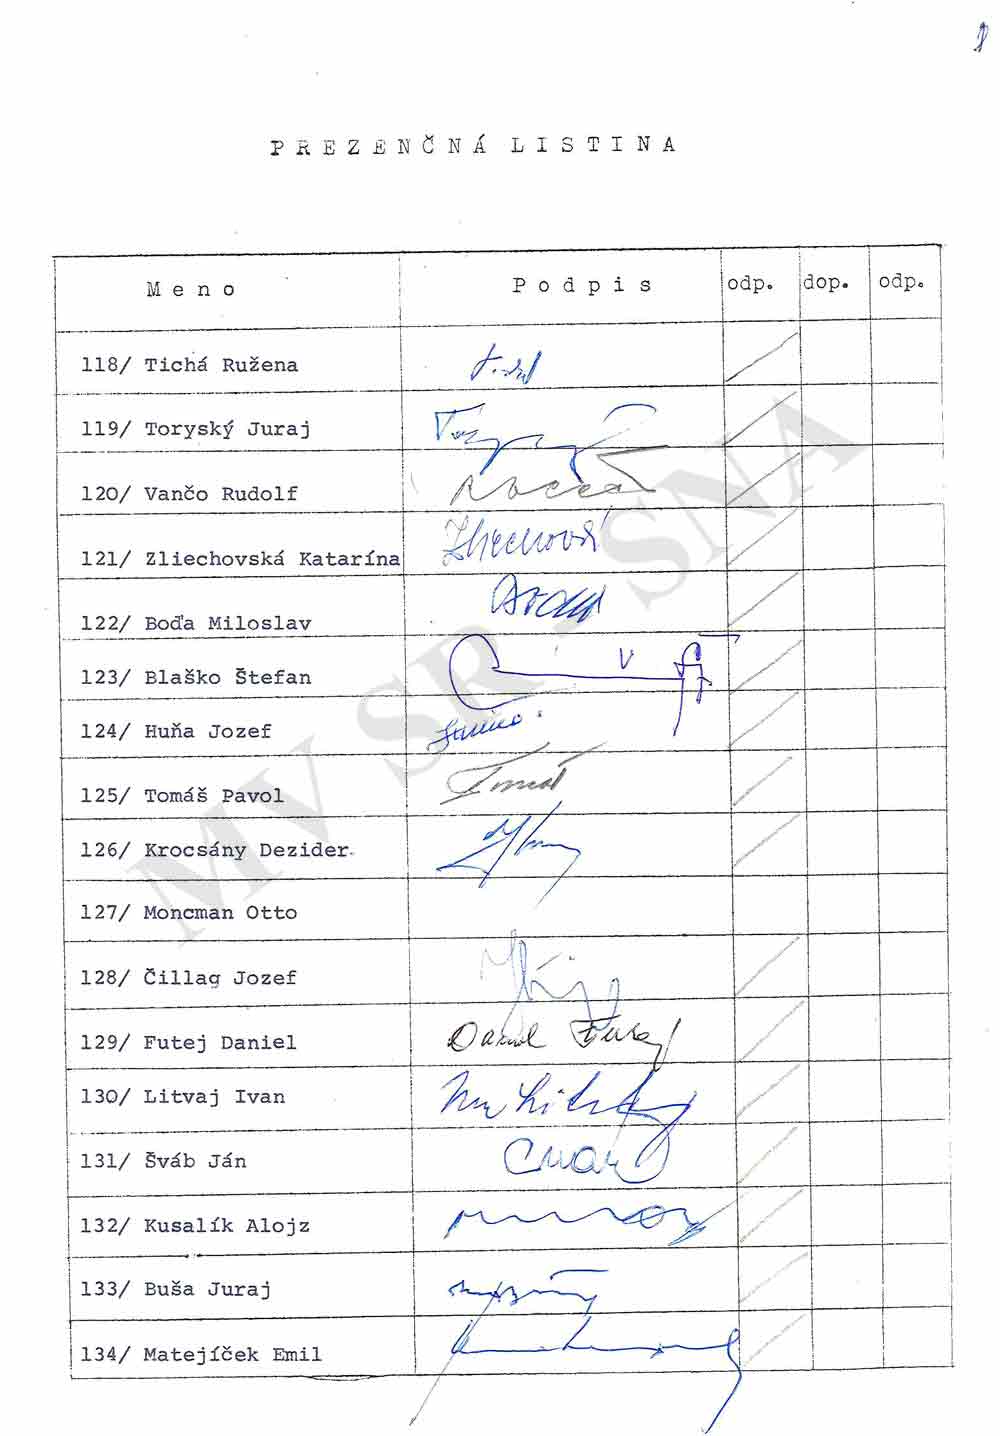 PREZENČNÁ LISTINA
Meno Podpis odp. dop. odp.
118/ Tichá Ružena
119/ Toryský Juraj
120/ Vančo Rudolf
121/ Zliechovská Katarína
122/ Boďa Miloslav
123/ Blaško Štefan
124/ Huňa Jozef
125/ Tomáš Pavol Tomáš
126/ Krocsány Dezider
127/ Moncman Otto
128/ Čillag Jozef
129/ Futej Daniel Daniel Futej
130/ Litvaj Ivan
131/ Šváb Ján
132/ Kusalík Alojz
133/ Buša Juraj
134/ Matejíček Emil
MV SR - SNA